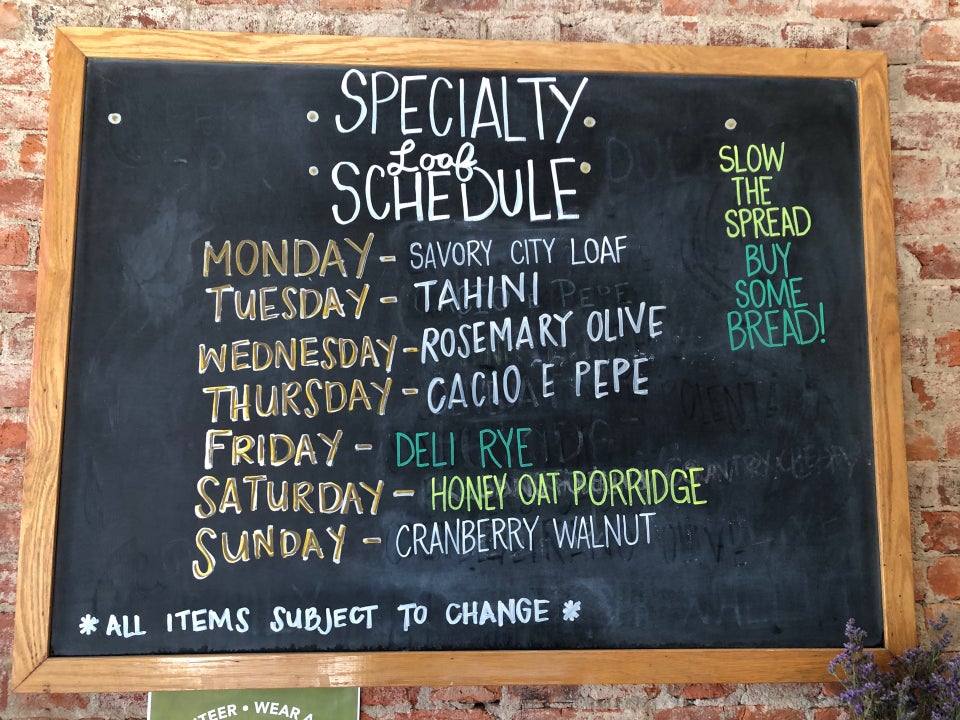 SPECIALTY
Loaf
SCHEDULE
MONDAY - SAVORY CITY LOAF
TUESDAY - TAHINI
WEDNESDAY - ROSEMARY OLIVE
THURSDAY - CACIO E PEPE
FRIDAY - DELI RYE
SATURDAY - HONEY OAT PORRIDGE
SUNDAY - CRANBERRY WALNUT
* ALL ITEMS SUBJECT TO CHANGE *
SLOW
THE
SPREAD
BUY
SOME
BREAD!
• WEAR A